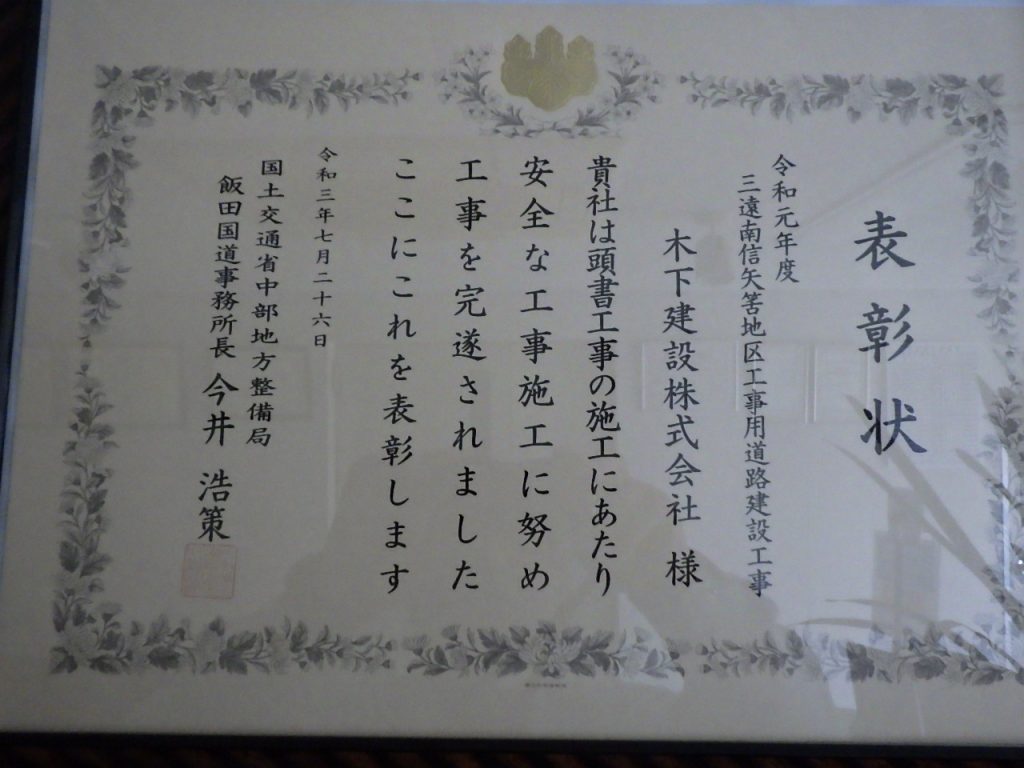 表彰状
令和元年度
三遠南信矢筈地区工事用道路建設工事
木下建設株式会社 様
貴社は頭書工事の施工にあたり
安全な工事施工に努め
工事を完遂されました
ここにこれを表彰します
令和三年七月二十六日
国土交通省中部地方整備局
飯田国道事務所長 今井 浩策